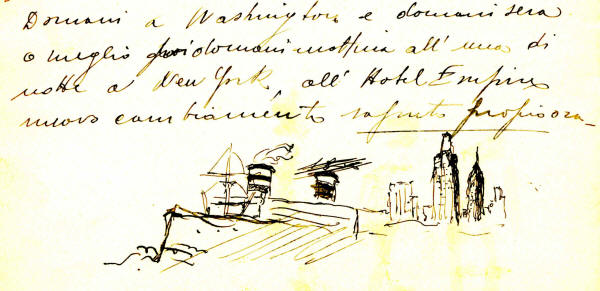 Domani a Washington e domani sera
o meglio domani mattina all'una di
notte a New York, all' Hotel Empire
nuovo cambiamento